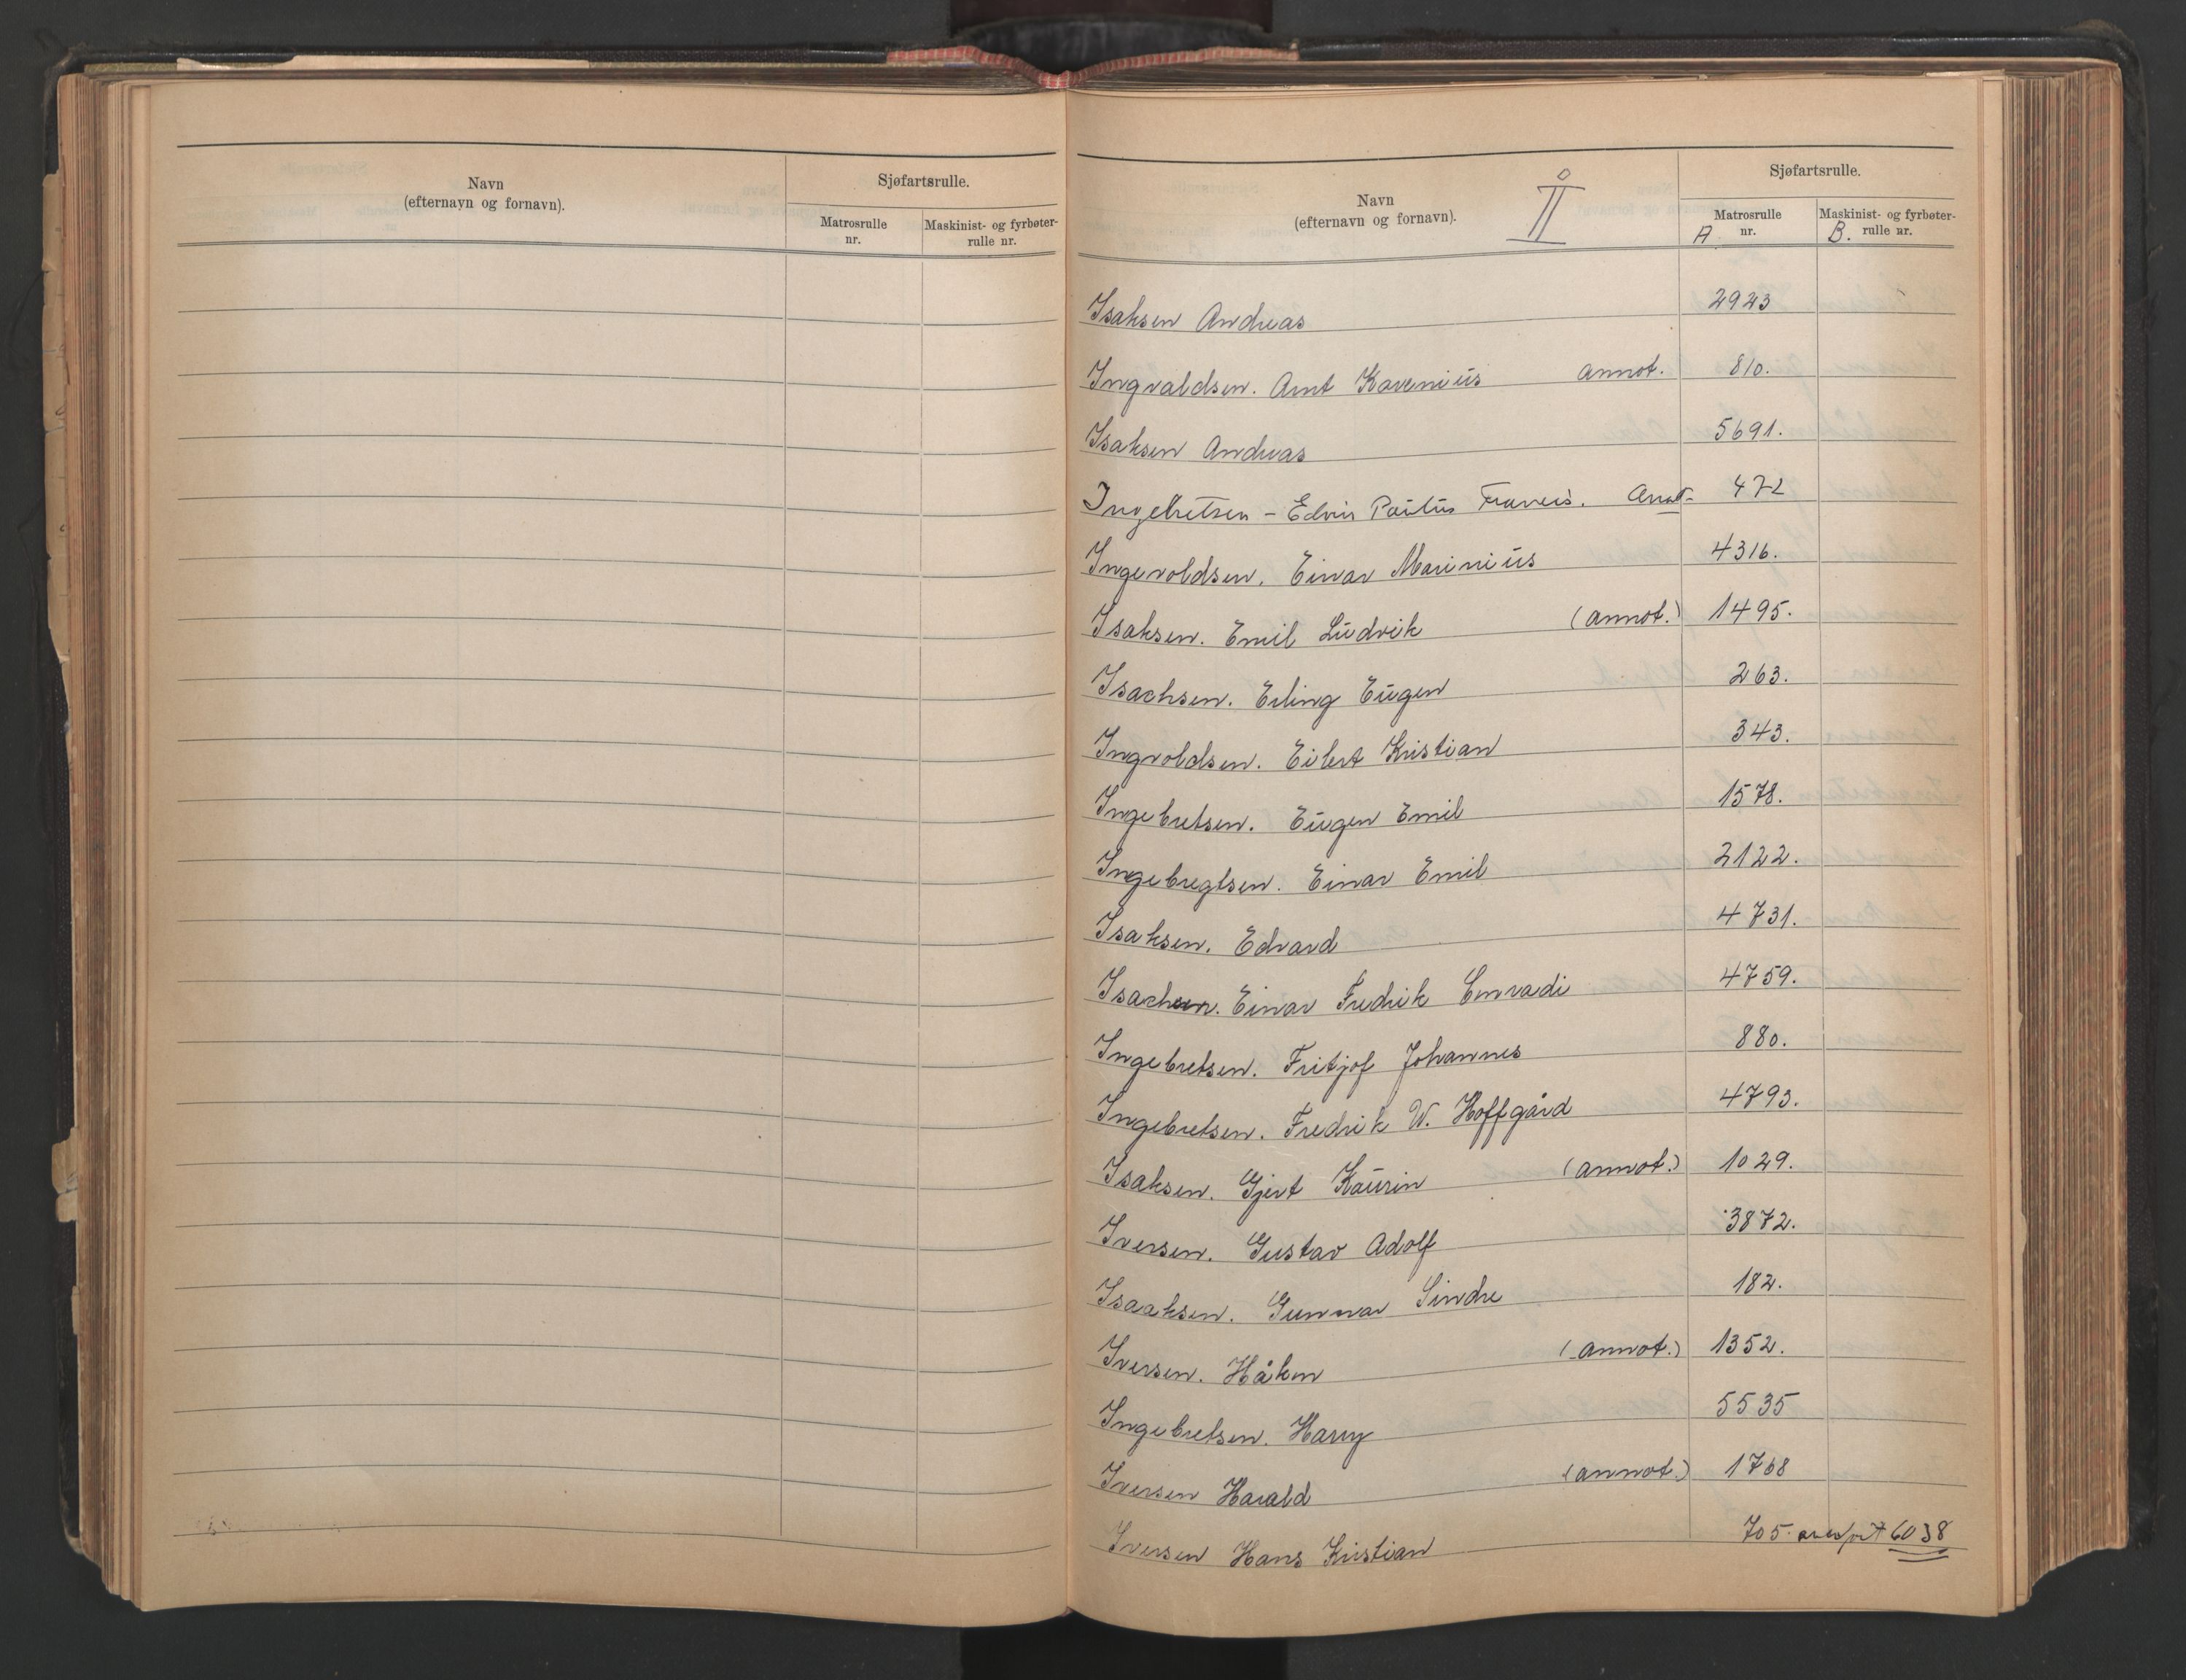 Navn
(efternavn og fornavn).
Sjøfartsrulle.
Matrosrulle
nr.
Maskinist- og fyrbøter-
rulle nr.
Navn
(efternavn og fornavn).
I
Sjøfartsrulle.
Matrosrulle
A nr.
Maskinist- og fyrbøter-
B. rulle nr.
Isaksen Andreas 2923
Ingvaldsen. Arnt Kavenius annot. 810.
Isaksen Andreas 5691.
Ingebretsen - Edvin Paulus Francis. Annot- 472
Ingevoldsen. Einar Marinius 4316.
Isaksen. Emil Ludvik (annot.) 1495.
Isachsen. Erling Eugen 263.
Ingvoldsen. Eilert Kristian 343.
Ingebretsen. Eugen Emil 1578.
Ingebregtsen. Einar Emil 2122.
Isaksen. Edvard 4731.
Isachsen. Einar Fredrik Conradi 4759.
Ingebretsen. Fritjof Johannes 880.
Ingebretsen. Fredrik W. Hoffgård 4793.
Isaksen. Gjert Kaurin (annot.) 1029.
Iversen. Gustav Adolf 3872.
Isaaksen. Gunnar Sindre 182.
Iversen. Håkon (annot.) 1352.
Ingebretsen. Harry 5535
Iversen Harald (annot.) 1768
Iversen Hans Kristian 705. 6038